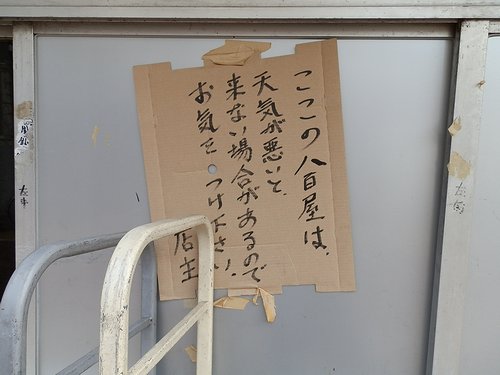 ここの八百屋は、
天気が悪いと、
来ない場合があるので
お気をつけ下さい。
店主